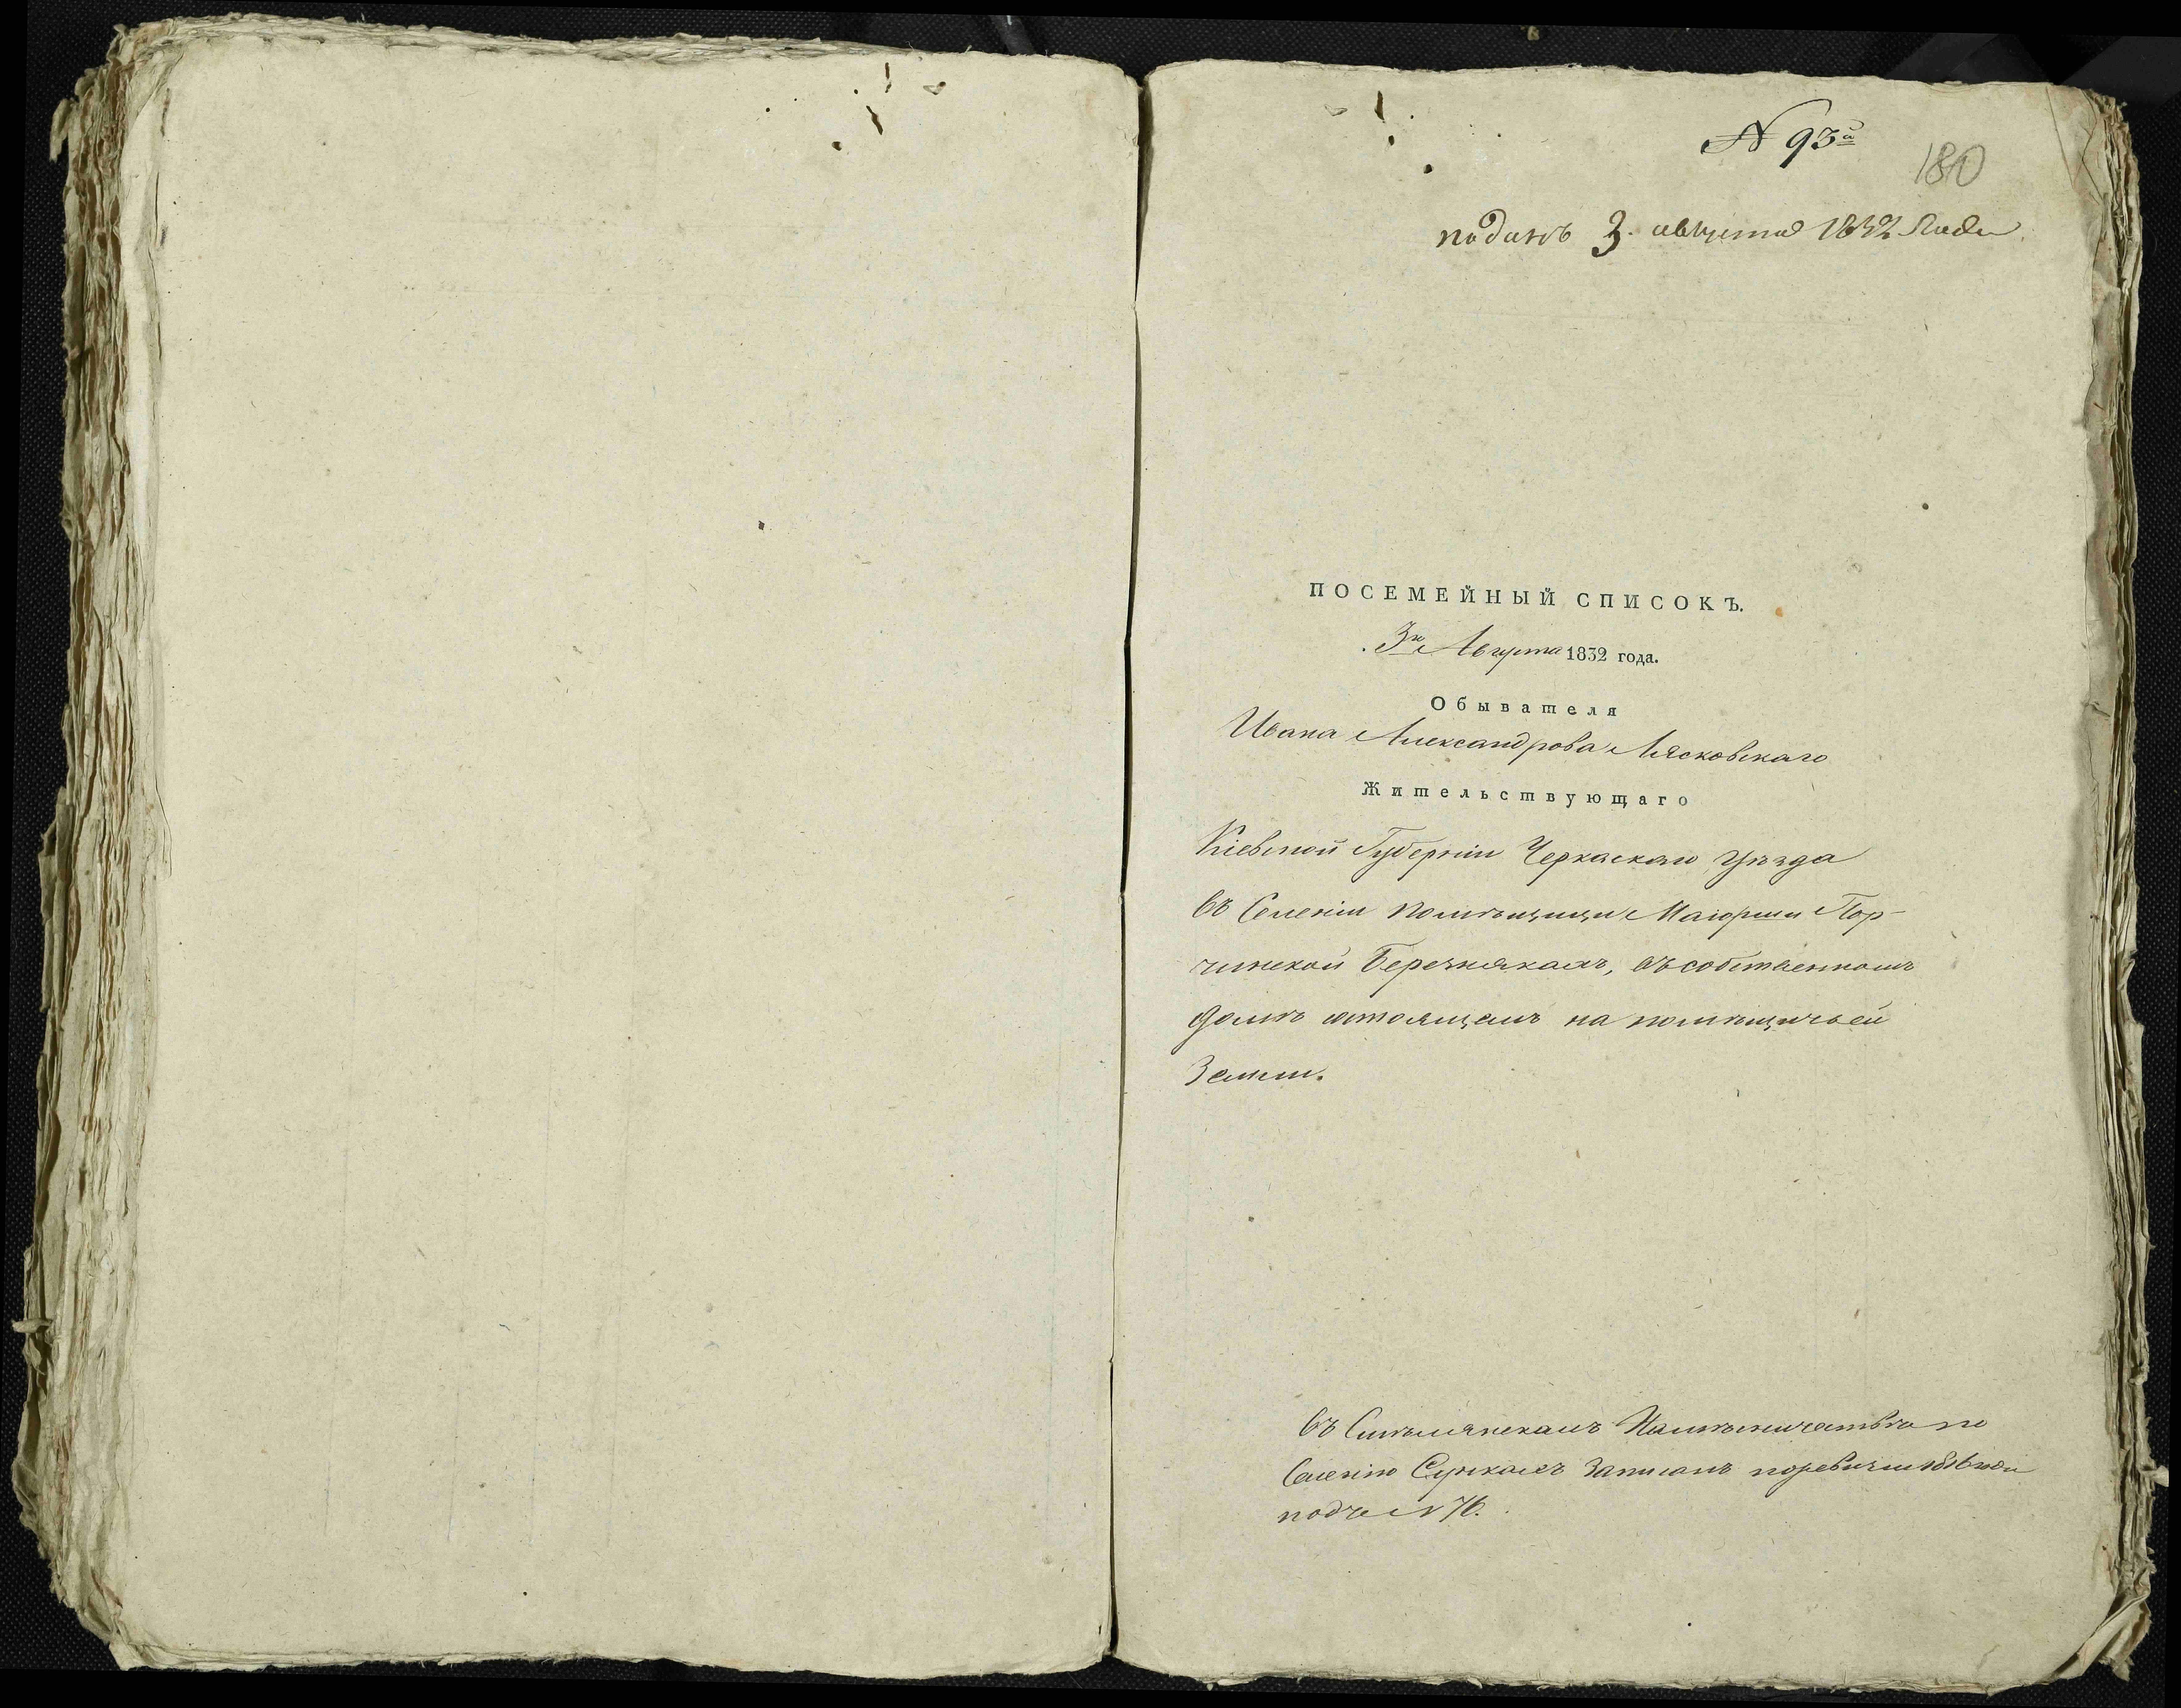 N 93й
180
поданъ 3. августа 1832 года
ПОСЕМЕЙНЫЙ СПИСОКЪ.
3го Августа 1832 года.
Обывателя
Ивана Александрова Лясковскаго
Жительствующаго
Кіевской Губерніи Черкаскаго уѣзда
въ Селеніи помѣщицы Маіорши Пор-
чинской Березнякахъ, въ собственномъ
домѣ стоящемъ на помѣщичьей
Земли.
въ Смѣлянскомъ
Селенію Сункахъ Записанъ поревизіи
подъ N 76.